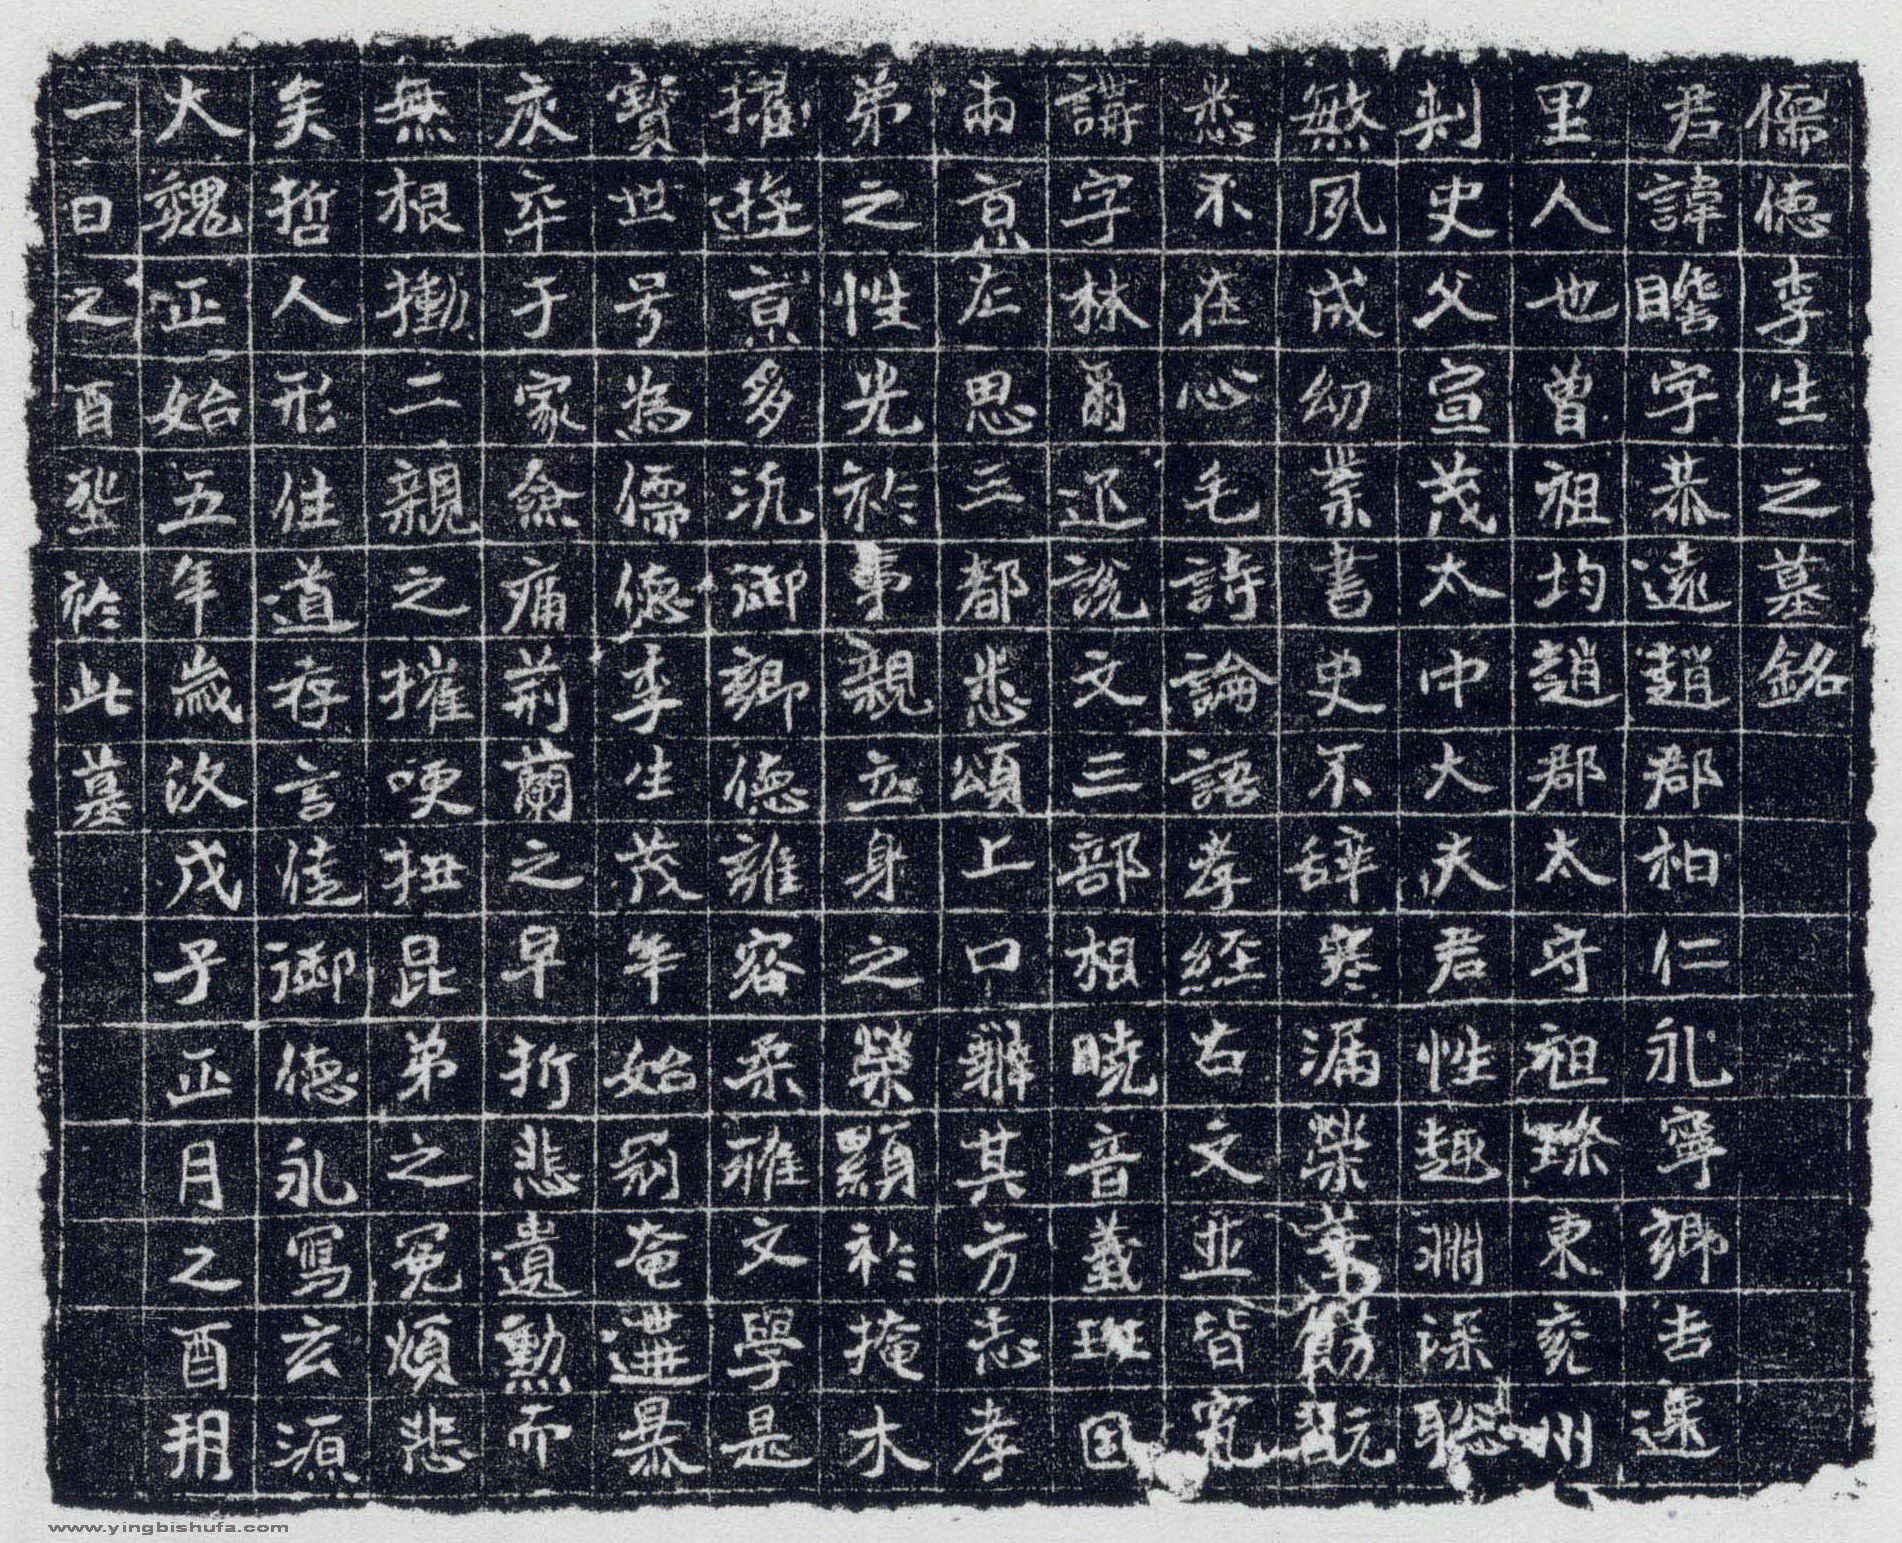 儒德李生之墓銘
君諱瞻字恭遠趙郡柏仁永寧鄉吉遷
里人也曾祖均趙郡太守祖璨東兗州
刺史父宣茂太中大夫君性趣淵深聰
敏夙成幼業書史不辞寒漏榮翫
悉不在心毛詩論語孝經古文並皆究
講字林爾迩說文三部相曉音義班固
兩京左思三都悉頌上口辯其方志孝
弟之性光於事親立身之榮顯於掩木
擢遊京多汎御鄉德雖容柔雅文學是
寶世号為儒德李生茂年始冠奄遘暴
灰卒于家僉痛荊蘭之早折悲遺勳而
無根慟二親之摧哽扭昆弟之冤煩悲
矣哲人形往道存言御德永寫玄源
大魏正始五年歲次戊子正月之酉朔
一日之酉塟於此墓
www.yingbishufa.com